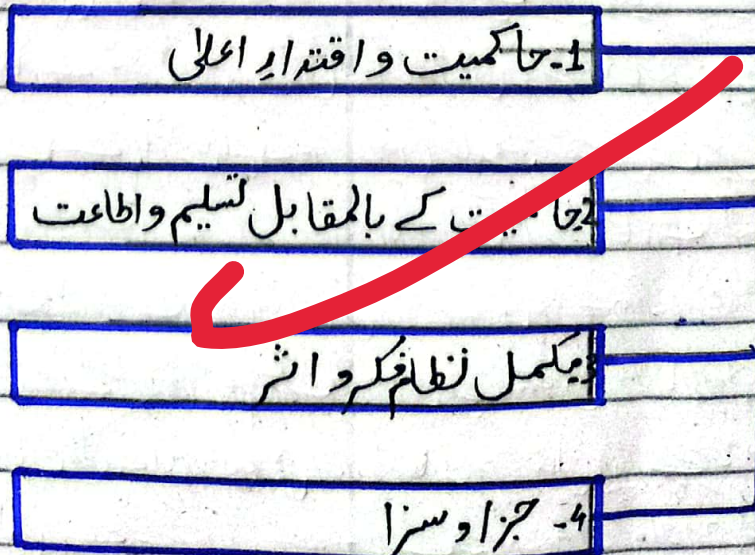 1۔ حاکمیت و اقتدارِ اعلیٰ
2۔ حاکمیت کے بالمقابل تسلیم و اطاعت
3۔ مکمل نظامِ فکر و اثر
4۔ جزا و سزا